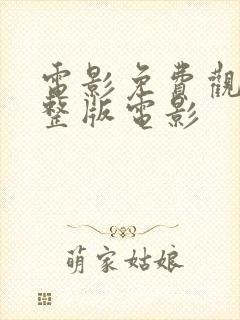 電影免費觀
整版電影
萌家姑娘